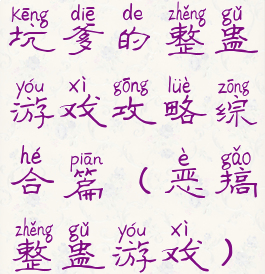 kēng diē de zhěng gǔ
坑爹的整蛊
yóu xì gōng lüè zōng
游戏攻略综
hé piān è gǎo
合篇（恶搞
zhěng gǔ yóu xì
整蛊游戏）